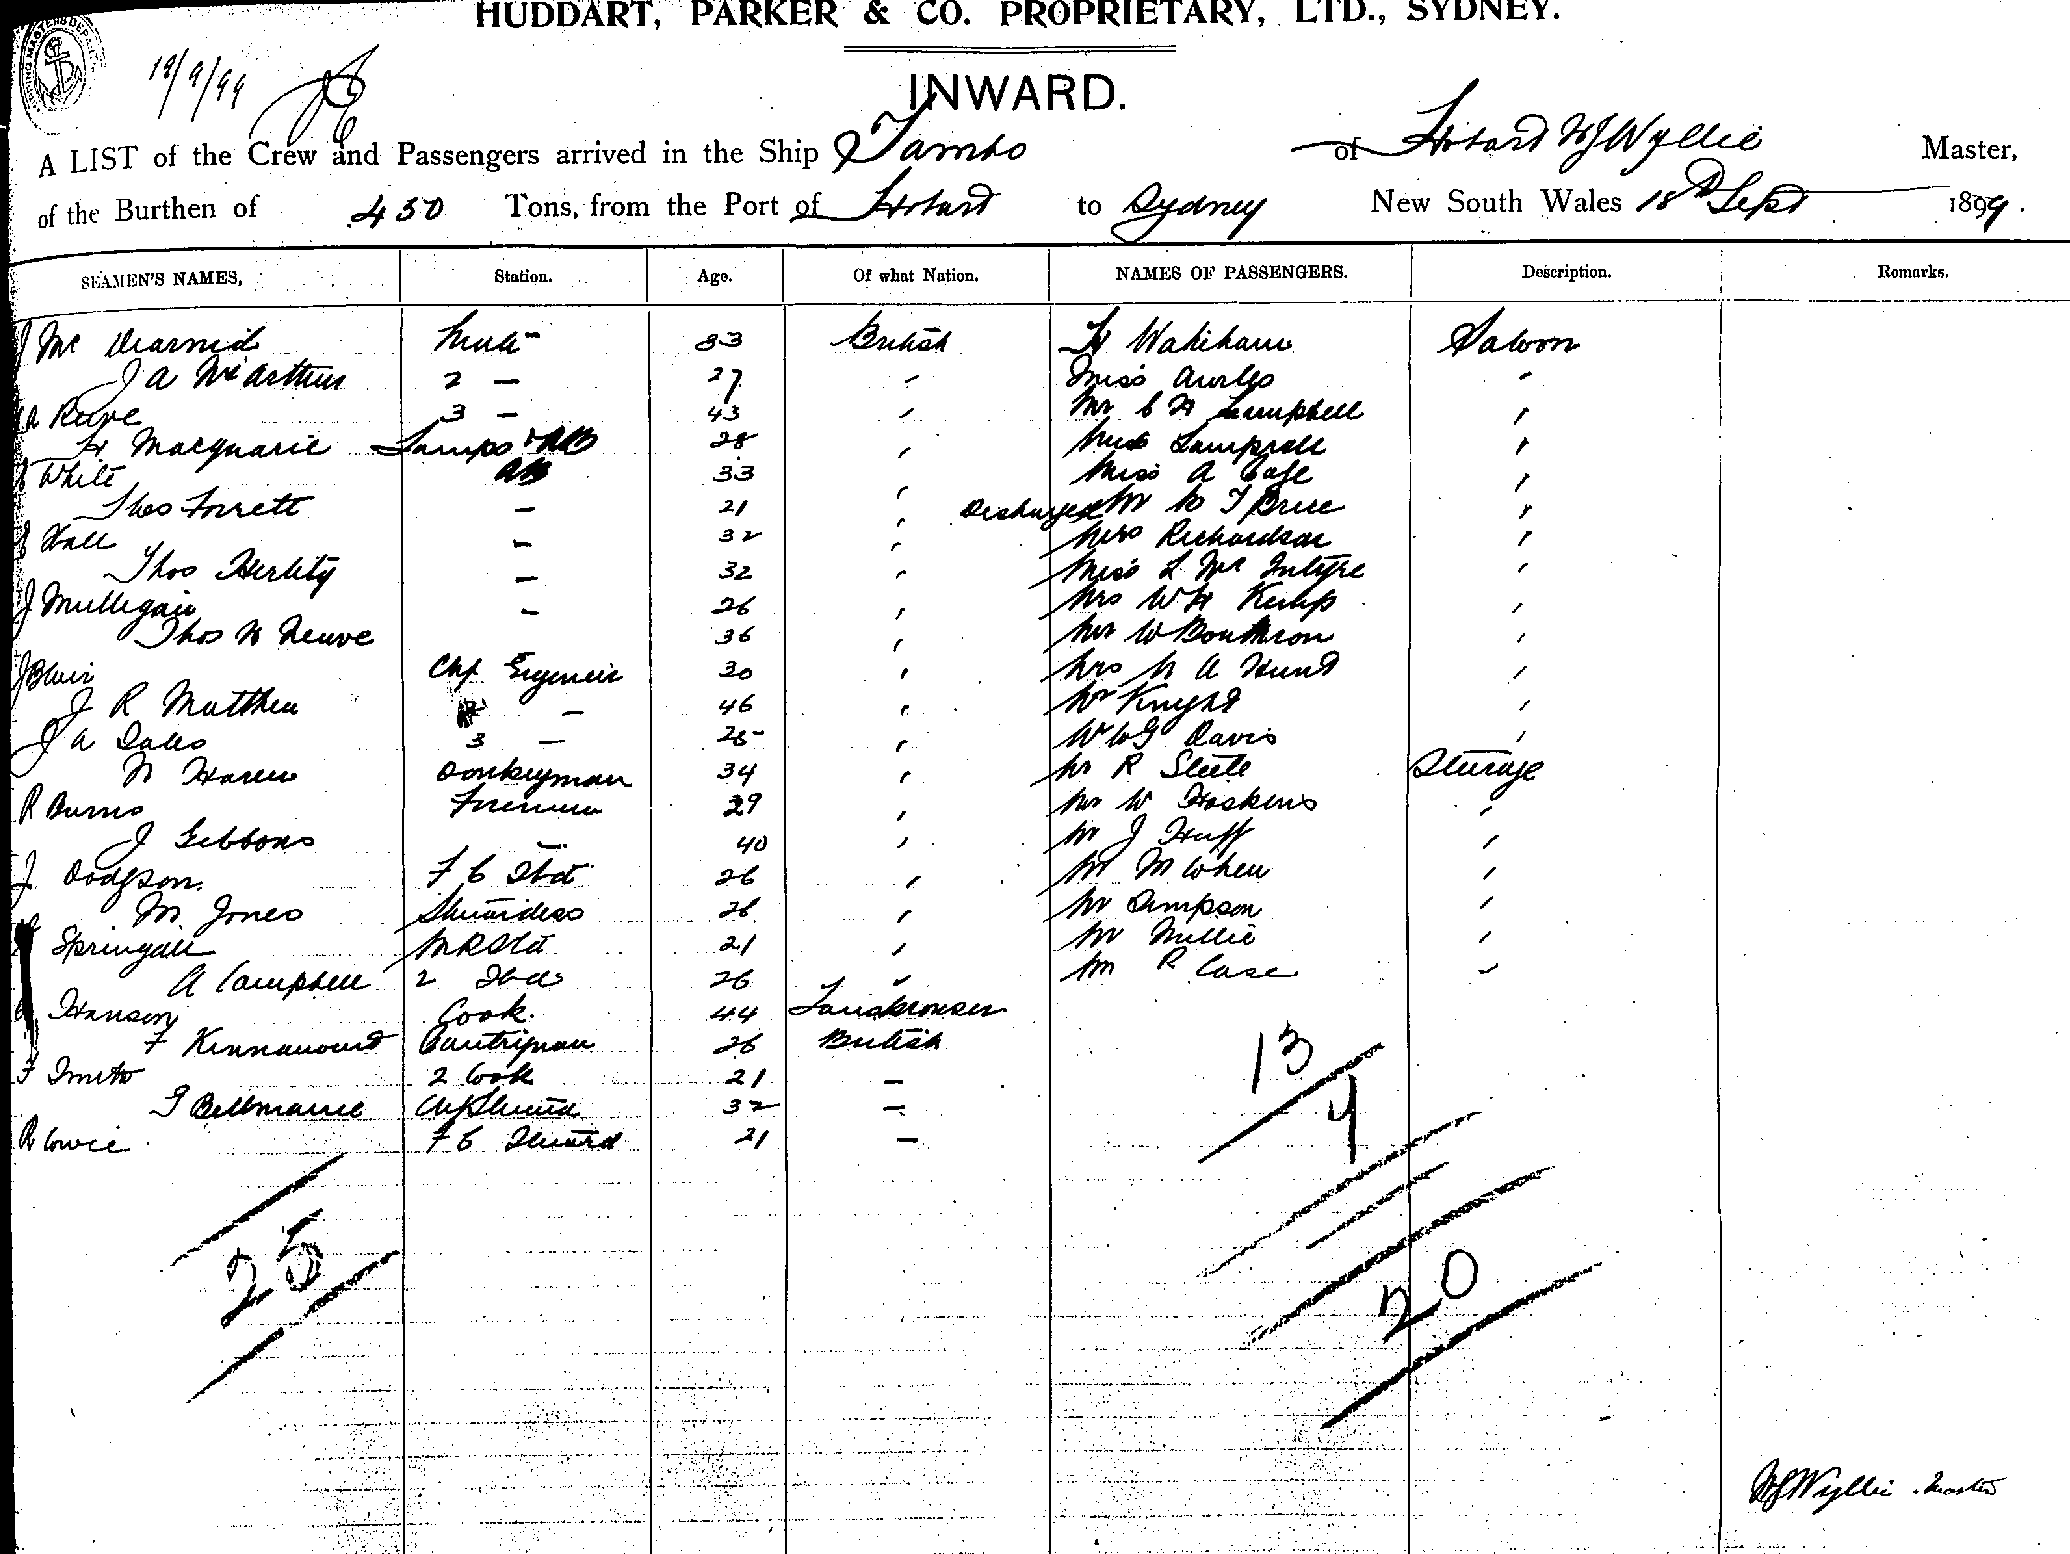 HUDDART, PARKER & CO. PROPRIETARY, LTD., SYDNEY.
19/9/99
INWARD.
A LIST of the Crew and Passengers arrived in the Ship Tambo of Hobart W J Wyllie Master,
of the Burthen of 450 Tons, from the Port of Hobart to Sydney New South Wales 18th Sept 1899.
SEAMEN'S NAMES, Station. Age. Of what Nation. NAMES OF PASSENGERS. Description. Remarks.
J Mc Diarmid Mate 33 British H Wakeham Saloon
J A McArthur 2 — 27 " Miss "
A Reeve 3 — 43 " Mr C H Campbell "
H Macquarie Lamps & AB 28 " Campbell "
White AB 33 " Miss A "
Thos Forrett — 21 " Discharged Mr W T Brice "
Hall — 32 " Mrs Richardson "
Thos Herlity — 32 " Miss L Mc Intyre "
J Mulligan — 26 " Mrs W H Kemp "
Thos H — 36 " Mr W Bouthron "
J Blair Chf Engineer 30 " Mrs A Hund "
J R Matthew 2 — 46 " Mr Knight "
J A Dales 3 — 25 " W G Davis "
Haren Donkeyman 34 " Mr R Steele Steerage
R Burns Fireman 29 " Mr W Hoskins "
J Gibbons — 40 " Mr J Huff "
J Dodgson F C Std 26 " Mr M When "
M Jones Stewardess 28 " Mr Simpson "
Springall M R Std 21 " Mr Millie "
A Campbell 2 Std 26 " Mr R Case "
Hanson Cook. 44
F Kinnamond Pantryman 26 British
F Smith 2 Cook 21 —
G Bellmaine Chf Steward 32 —
R Cowie F C Steward 21 —
13
7
25
20
W J Wyllie Master